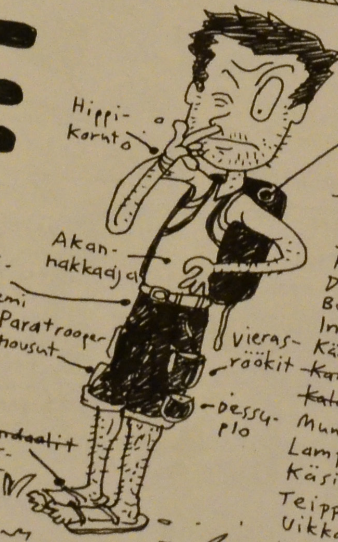 Hippi-
koruto
Akan-
hakkaaja
emi
Paratrooper
housut
vieras-
röökit
Dessu-
plo
ndaalit
D
Bo
In
Kä
Ka
Kal
Mun
Lamp
Käsi
Teipp
Uikk